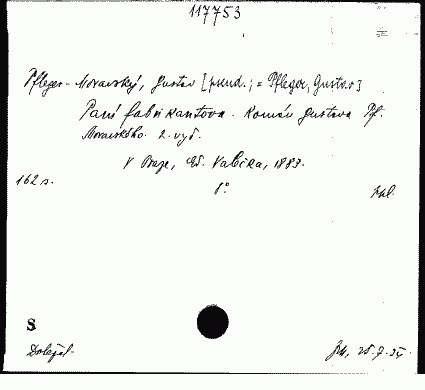 117753
Pfleger-Moravský, Gustav [pseud.; = Pfleger, Gustav]
Paní fabrikantova. Román Gustava Pf.
Moravského. 2. vyd.
V Praze, Ed. Valečka, 1883.
162 s. 8°
S
Doležal.